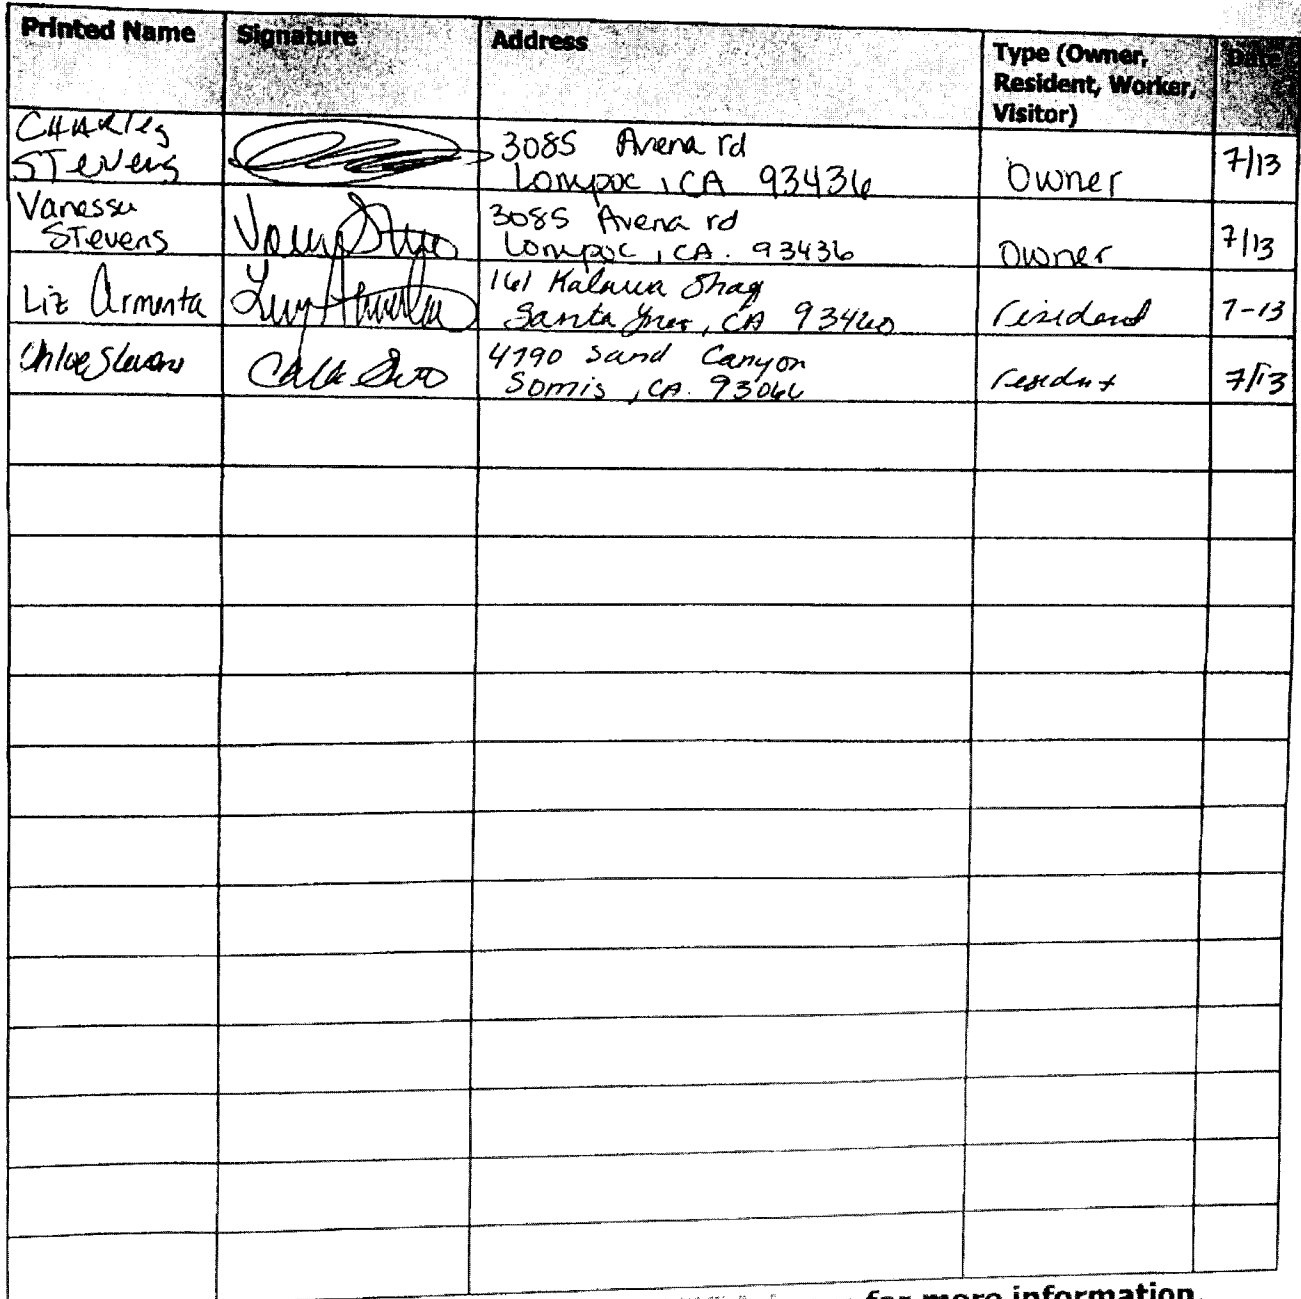 Printed Name
Signature
Address
Type (Owner,
Resident, Worker,
Visitor)
Date
CHARles
STevens
3085 Avena rd
Lompoc, CA 93436
Owner
7/13
Vanessa
STevens
3085 Avena rd
Lompoc, CA. 93436
Owner
7/13
Liz Armenta
161 Kalawa Shaq
Santa Ynez, CA 93460
resident
7-13
Chloe Stevens
4790 Sand Canyon
Somis, CA. 93066
resident
7/13
for more information.